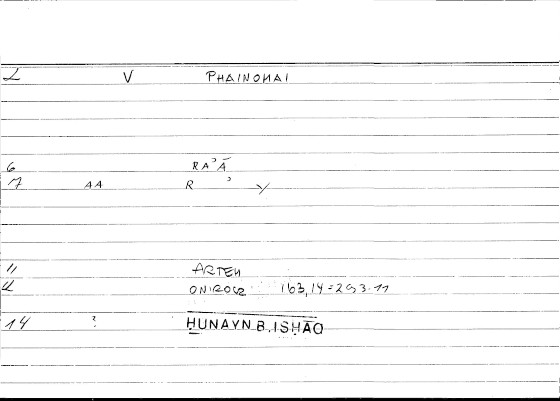 2 V PHAINOMAI
6 RAʾĀ
7 AA R ʾ Y
11 ARTEM
12 ONIROCR 163,14 = 293.11
14 ? ḤUNAYN B. ISḤĀQ